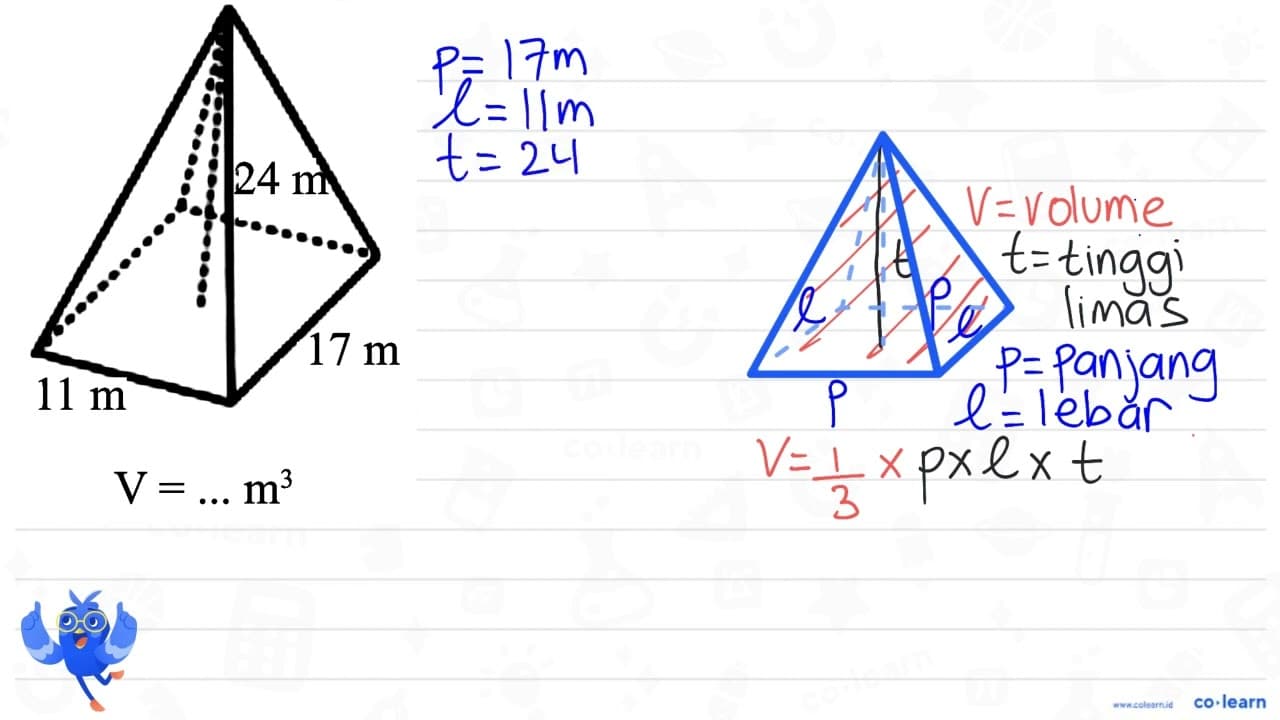 24 m
17 m
11 m
V = ... m³
p = 17m
l = 11m
t = 24
t
l
p
l
p
V = volume
t = tinggi
limas
p = panjang
l = lebar
V = 1/3 × p × l × t
co·learn
www.colearn.id
co·learn